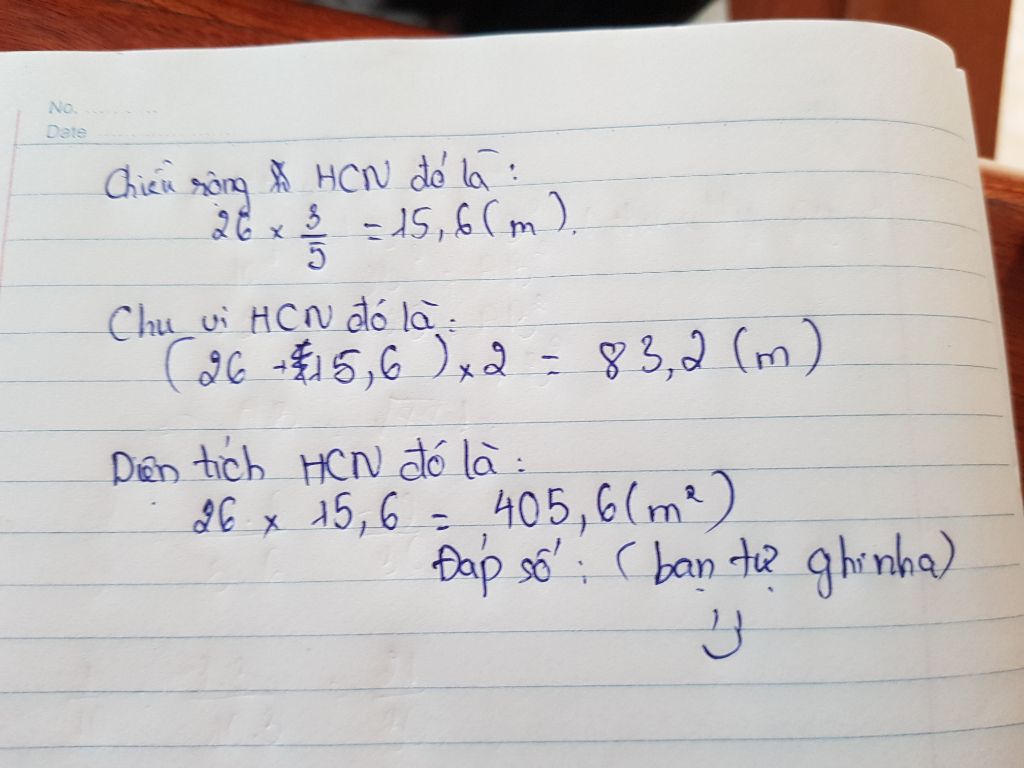 No. ............
Date ........................
Chiều rộng HCN đó là :
26 x 3/5 = 15,6 (m).
Chu vi HCN đó là :
( 26 + 15,6 ) x 2 = 83,2 (m)
Diện tích HCN đó là :
26 x 15,6 = 405,6 (m²)
Đáp số : ( bạn tự ghi nha)